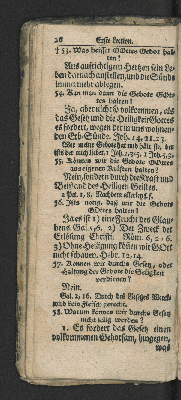 26 Erste Lection.
† 53. Was heisset GOttes Gebot hal-
ten?
Aus aufrichtigem Hertzen sein Le-
ben darnach anstellen, und die Sünde
immer mehr ablegen.
54. Kan man dann die Gebote GOt-
tes halten?
Ja, aber nicht so vollkommen, als
das Gesetz und die Heiligkeit GOttes
es fordert, wegen der in uns wohnen-
den Erb-Sünde.
Wer meine Gebote hat und hält sie, der
ists der mich liebet.
55. Können wir die Gebote GOttes
aus eigenen Kräften halten?
Nein, sondern durch die Kraft und
Beystand des Heiligen Geistes.
2 Pet. 1, 8.
56. Ists nöthig, daß wir die Gebote
GOttes halten?
Ja es ist 1) eine Frucht des Glau-
bens Gal. 5, 6. 2) Der Zweck der
Erlösung Christi. Röm. 6, 2. 6.
3) Ohne Heiligung können wir GOtt
nicht schauen. Hebr. 12, 14.
57. Können wir durchs Gesetz, oder
Haltung der Gebote die Seligkeit
verdienen?
Nein.
Gal. 2, 16. Durch des Gesetzes Wercke
wird kein Fleisch gerecht.
58. Warum können wir durchs Gesetz
nicht selig werden?
1. Es fordert das Gesetz einen
vollkommenen Gehorsam, hingegen,
was